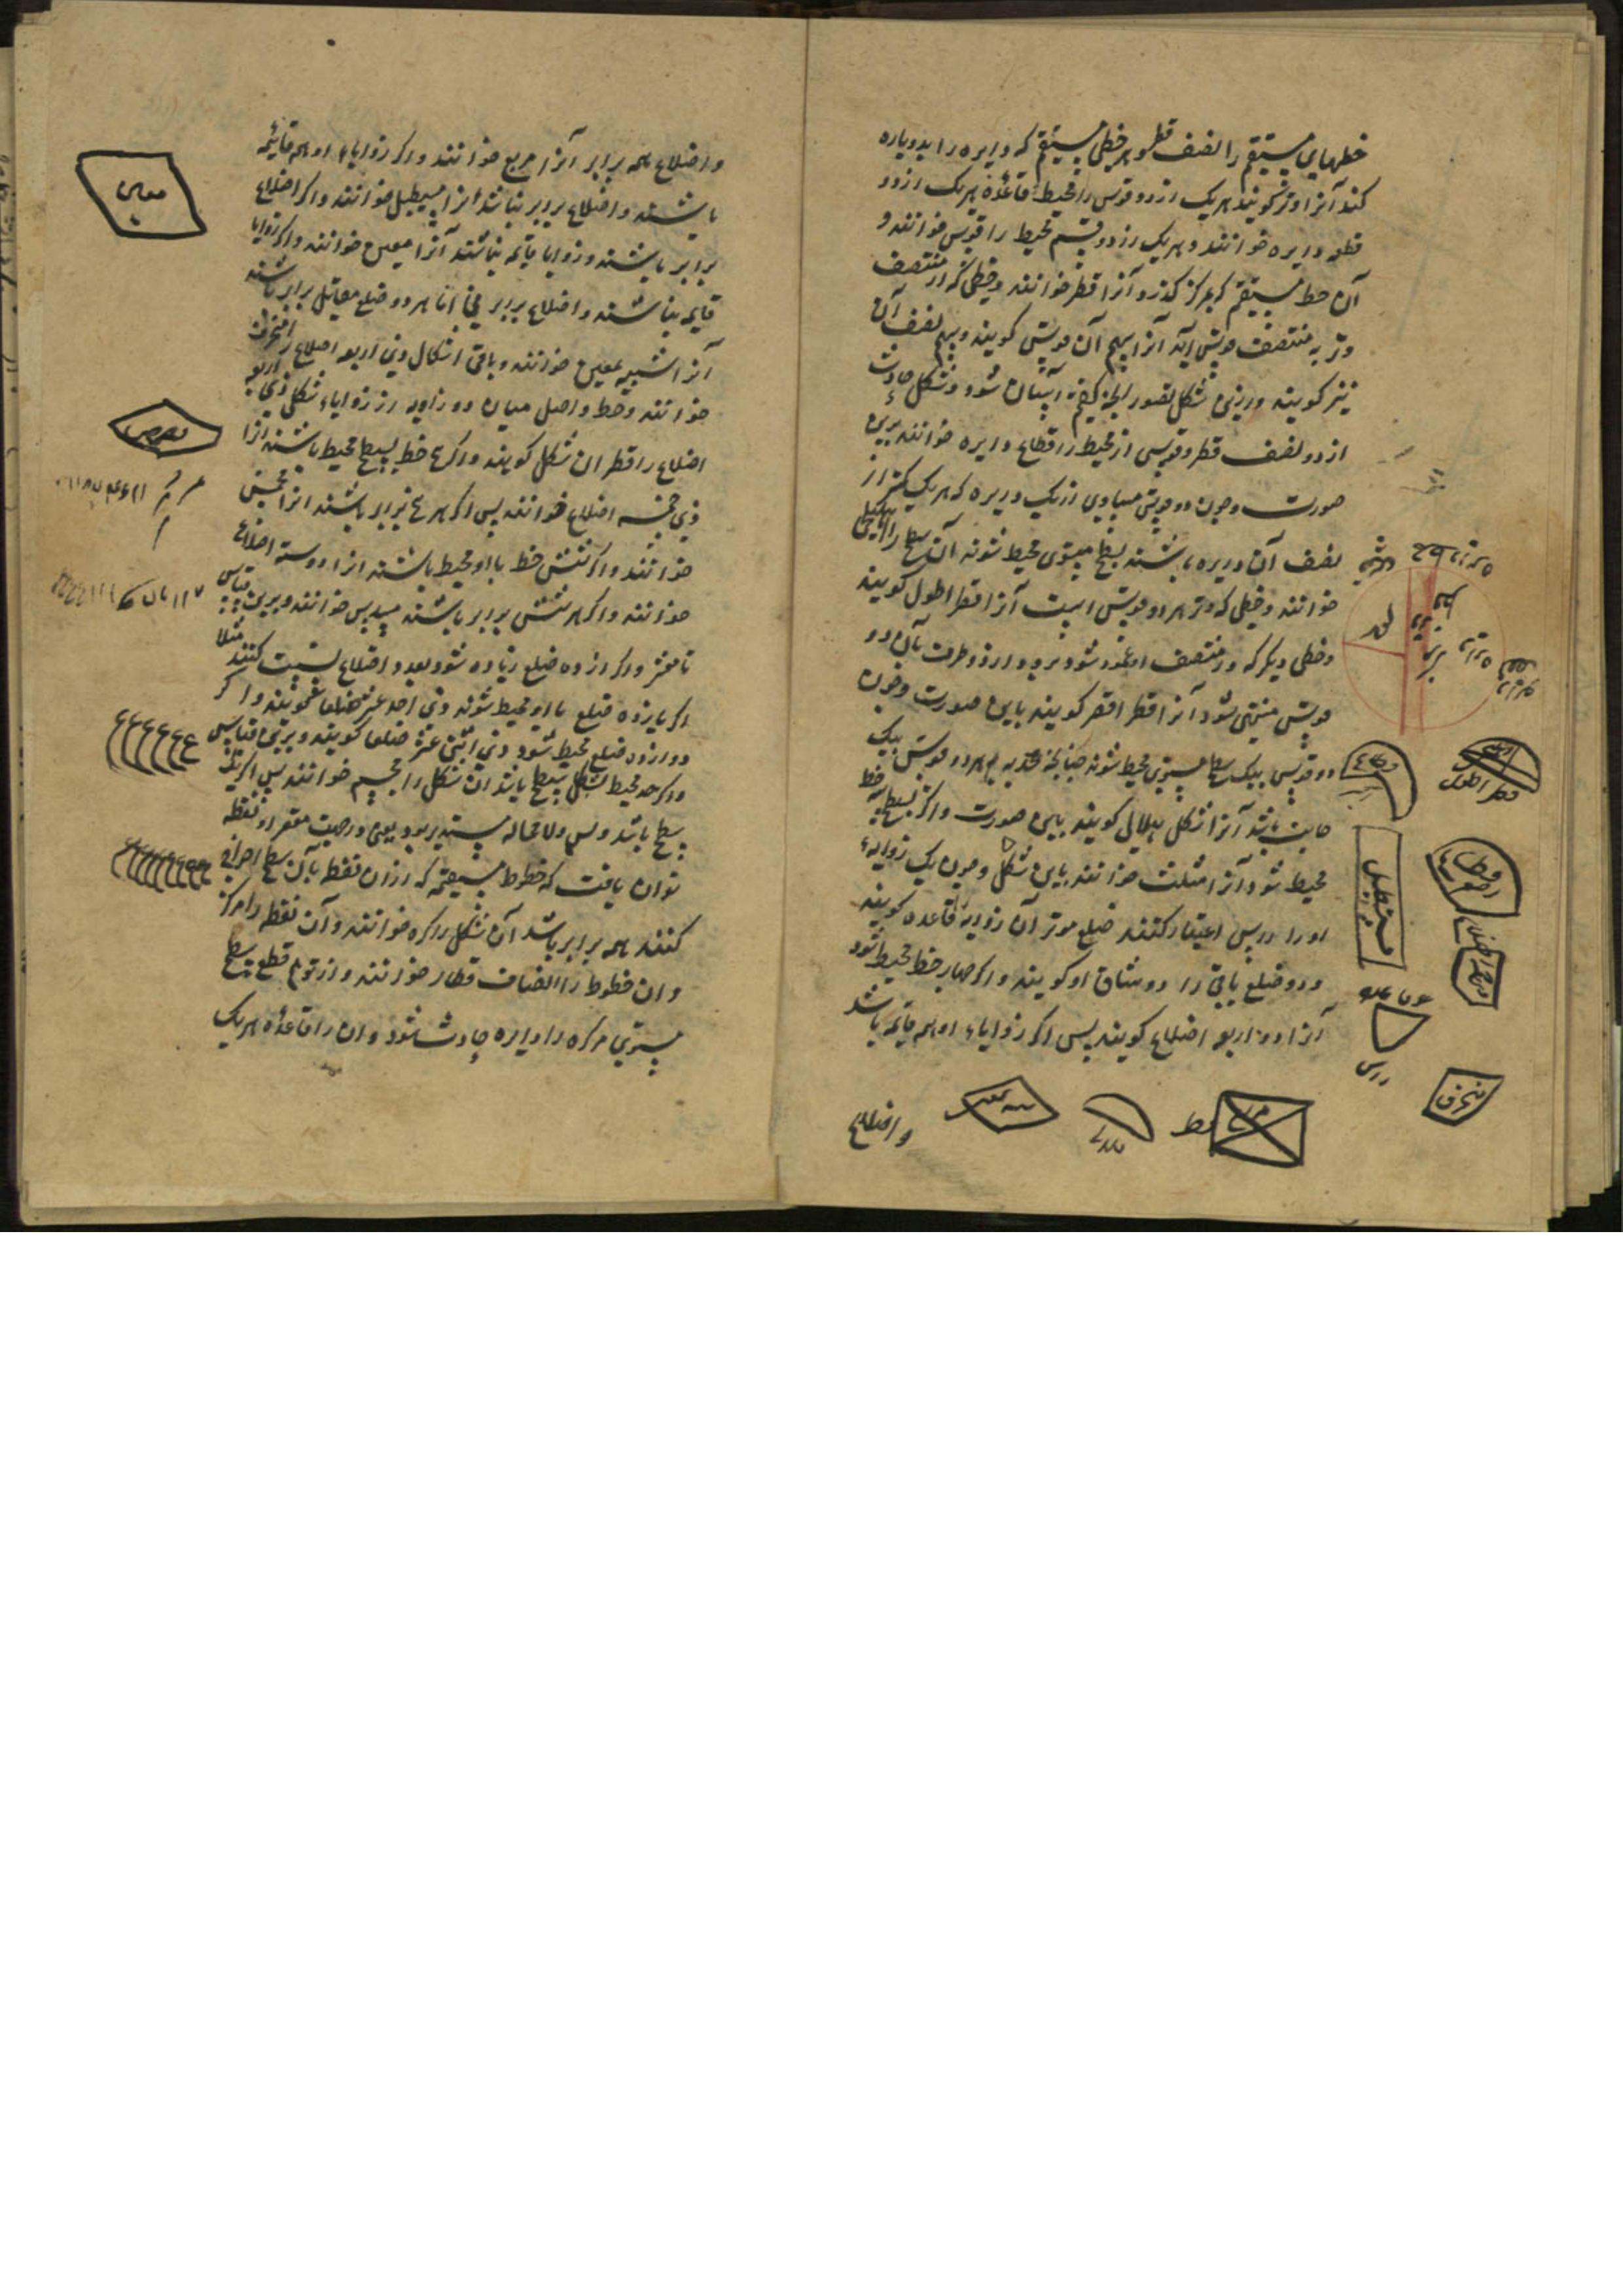 خطهای مستقیم را نصف قطر و هر خطی مستقیم که دایره را بدو پاره
کند آنرا وتر گویند هر یک از دو قوس را محیط قاعده هر یک از دو
قطعه دایره خوانند و هر یک از دو قسم محیط را قوس خوانند و
آن خط مستقیم که بمرکز گذرد آنرا قطر خوانند و خطی که از منتصف
وتر به منتصف قوس آید آنرا سهم آن قوس گویند و سهم نصف آن
نیز گویند و ازین شکل تصور آنچه گفتیم آسان شود و شکل حادث
از دو نصف قطر و قوسی از محیط را قطاع دایره خوانند برین
صورت و چون دو قوس مساوی از یک دایره که هر یک کمتر از
نصف آن دایره باشند بسطح مستوی محیط شوند آن سطح را اهلیلجی
خوانند و خطی که وتر هر دو قوس است آنرا قطر اطول گویند
و خطی دیگر که در منتصف او عمود شود برو و از دو طرف بآن دو
قوس منتهی شود آنرا قطر اقصر گویند باین صورت و چون
دو قوس بیک سطح مستوی محیط شوند چنانچه حدبه هر دو قوس بیک
جانب باشد آنرا شکل هلالی گویند باین صورت و اگر بسطح سه خط
محیط شود آنرا مثلث خوانند باین شکل و چون یک زوایه
او را راس اعتبار کنند ضلع موتر آن زاویه را قاعده گویند
و دو ضلع باقی را دو ساق او گویند و اگر چهار خط محیط شود
آنرا ذو اربعه اضلاع گویند پس اگر زوایاء او همه قایمه باشد
و اضلاع
قطر اطول
مستطیل
منحرف
واضلاع همه برابر آنرا مربع خوانند و اگر زوایاء او همه قایمه
باشند و اضلاع برابر نباشد آنرا مستطیل خوانند و اگر اضلاع
برابر باشند و زوایا قایمه نباشند آنرا معین خوانند و اگر زوایا
قایمه نباشند و اضلاع برابر نی اما هر دو ضلع مقابل برابر باشند
آنرا شبیه بمعین خوانند و باقی اشکال ذی اربعه اضلاع را منحرف
خوانند و خط واصل میان دو زاویه از زوایاء شکل ذی اربعه
اضلاع را قطر آن شکل گویند و اگر پنج خط بسطح محیط باشند آنرا
ذی خمسه اضلاع خوانند پس اگر هر پنج برابر باشند آنرا مخمس
خوانند و اگر شش خط با او محیط باشند آنرا ذو ستة اضلاع
خوانند و اگر هر شش برابر باشند مسدس خوانند و برین قیاس
تا معشر و اگر از ده ضلع زیاده شود بعدد اضلاع نسبت کنند مثلا
اگر یازده ضلع با او محیط شوند ذی احد عشر ضلعا گویند و اگر
دوازده ضلع محیط شود ذی اثنی عشر ضلعا گویند و برین قیاس
و اگر حد محیط بشکل سطح باشد آن شکل را مجسم خوانند پس اگر یک
سطح باشد و بس و لا محاله مستدیر بود یعنی در جهت مقعر او نقطه
توان یافت که خطوط مستقیمه که از آن نقطه بآن سطح اخراج
کنند همه برابر باشد آن شکل را کره خوانند و آن نقطه را مرکز
و آن خطوط را انصاف قطار خوانند و از توهم قطع سطح
مستوی مر کره را دایره حادث شود و آن را قاعده هر یک
معین